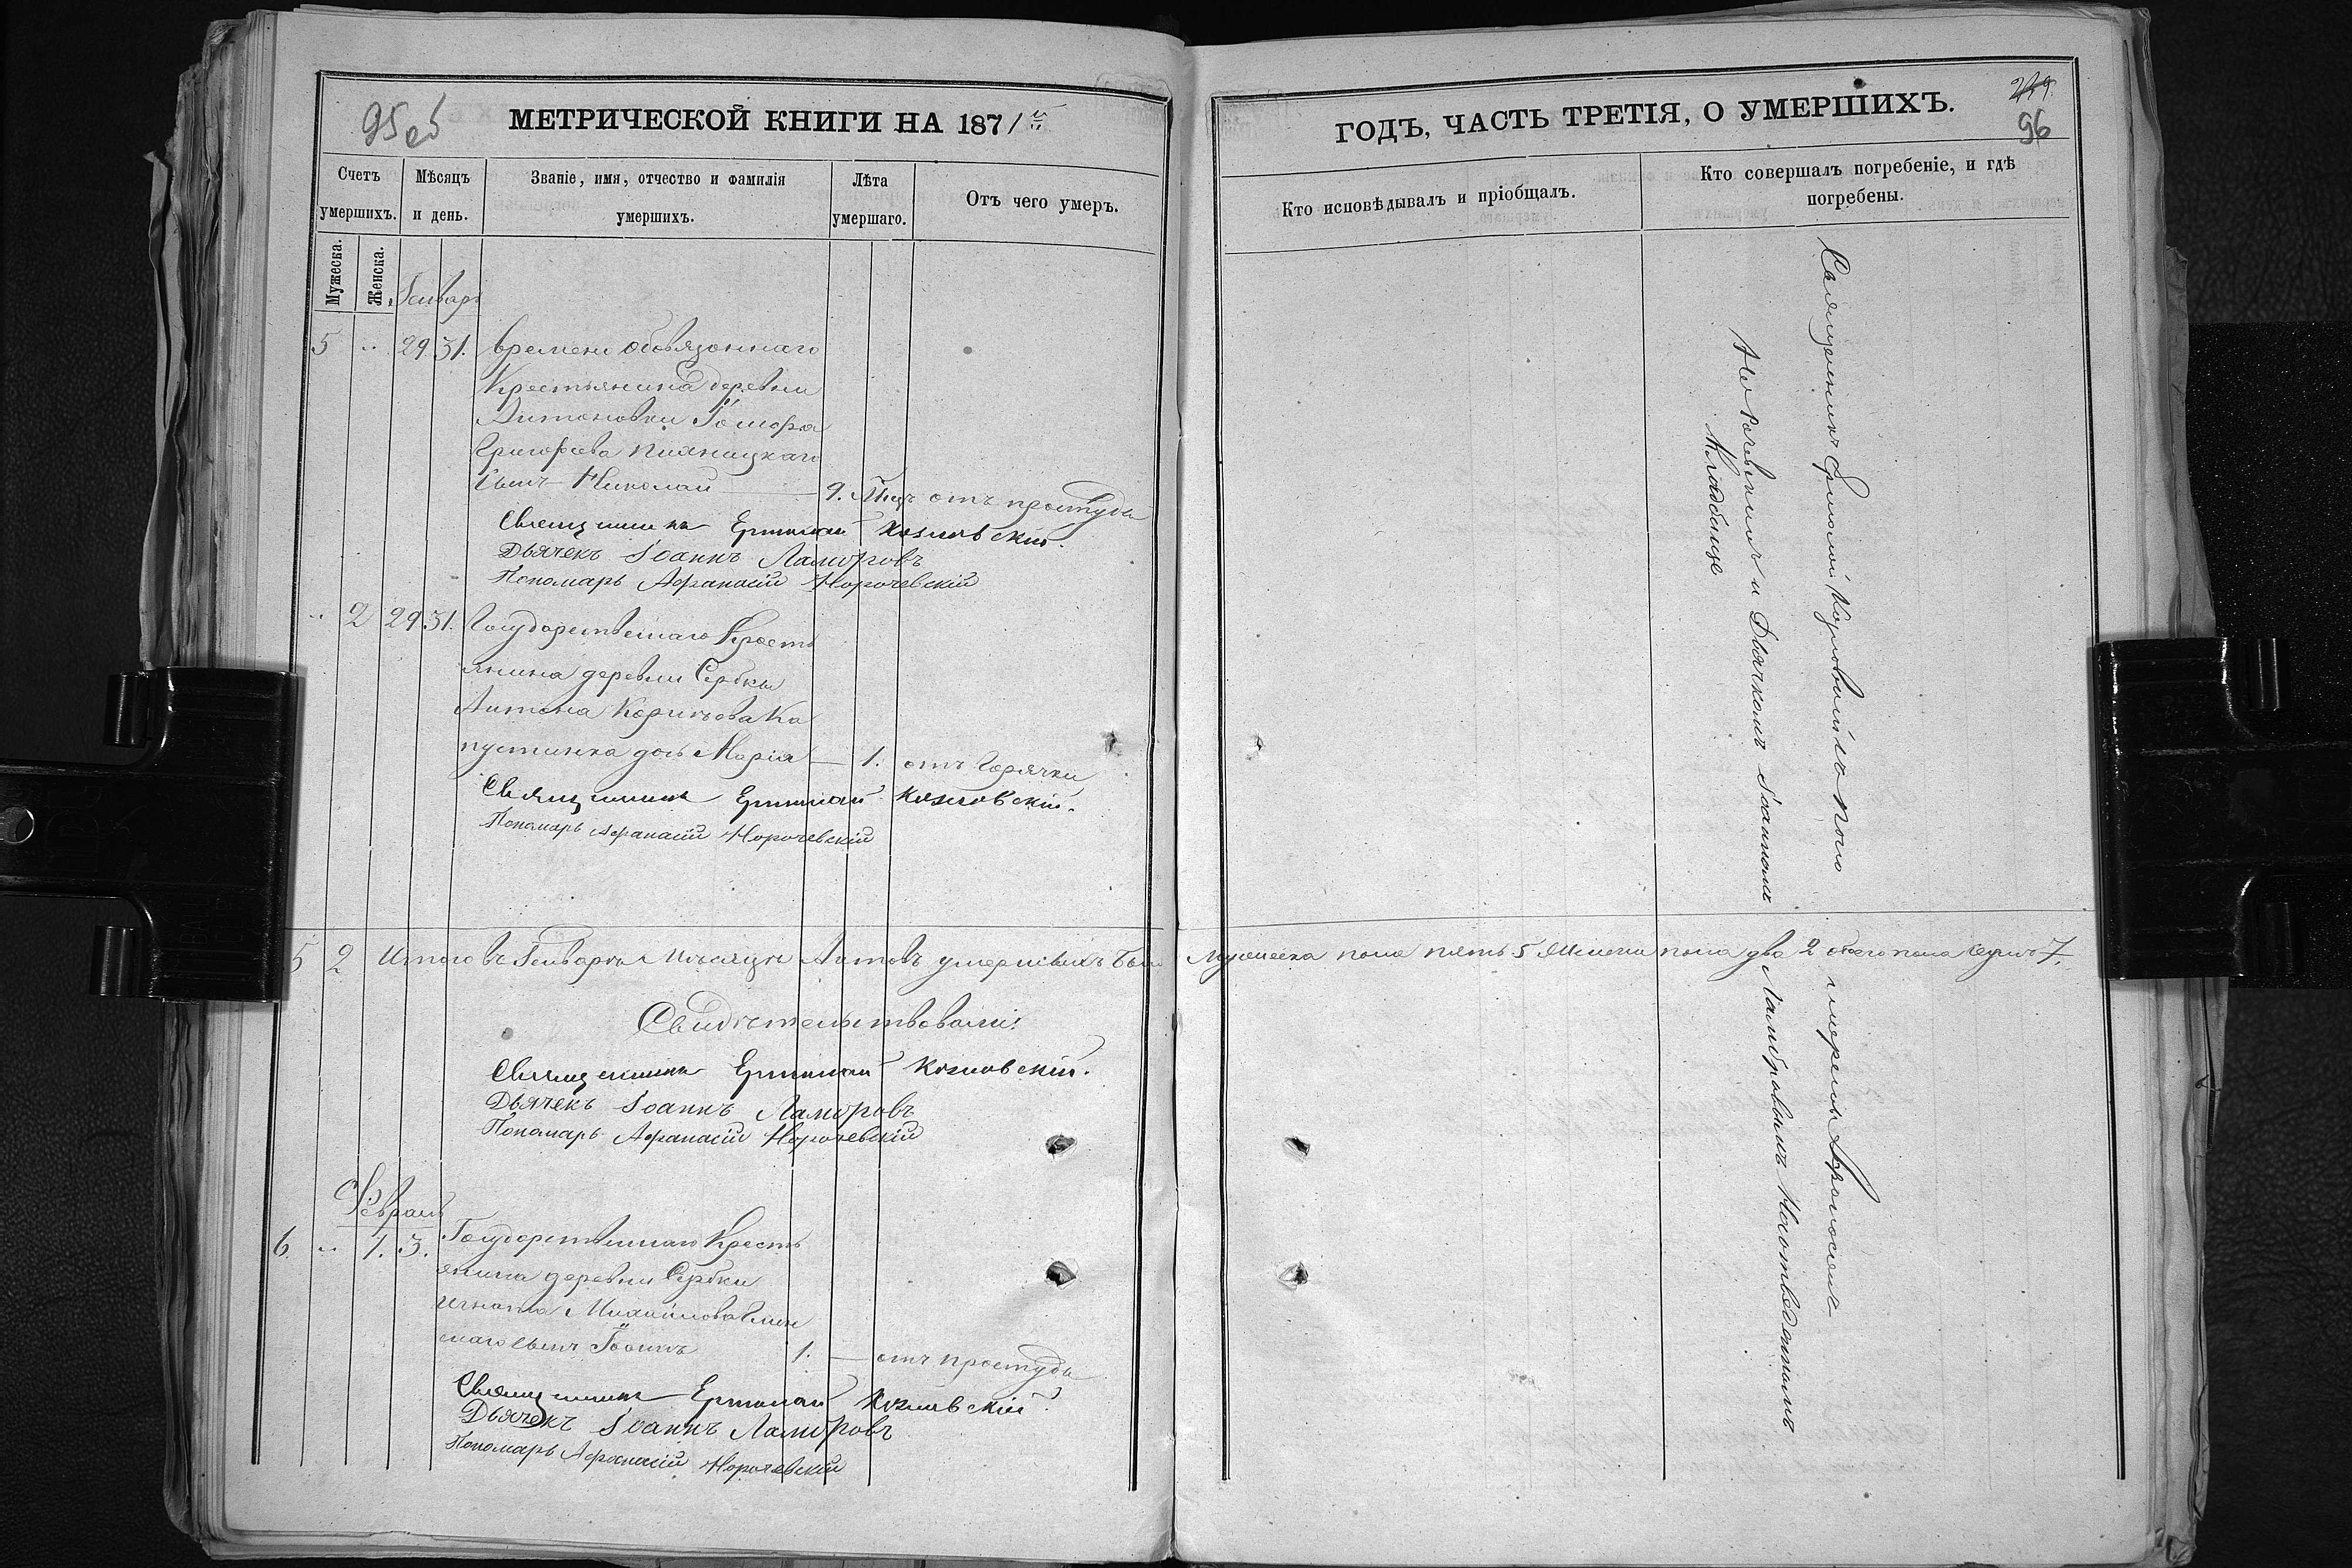 95 об
МЕТРИЧЕСКОЙ КНИГИ НА 1871й
Счетъ умершихъ.
Мѣсяцъ и день.
Званіе, имя, отчество и фамилія умершихъ.
Лѣта умершаго.
Отъ чего умеръ.
Мужеска.
Женска.
Генварь
5 " 29 31. Времени обовязоннаго
Крестьянина деревни
Антоновки
Григорьева Пияницкаго
Сынъ Николай 9. Мцъ отъ простуды
Священникъ Ермолай Козловскій.
Дьячекъ Іоаннъ Ламбровъ
Пономарь Афанасій Норочевскій
" 2 29 31. Государственнаго Кресть
янина деревни Сербки
Антона Ка
пустинка дочь Марія 1. отъ Горячки
Священникъ Ермолай Козловскій.
Пономарь Афанасій Норочевскій
5 2 Итого въ Генварѣ Мѣсяцѣ Актовъ умершихъ Было
Свидѣтельствовали:
Священникъ Ермолай Козловскій.
Дьячекъ Іоаннъ Ламбровъ
Пономарь Афанасій Норочевскій
Февраль
6. " 1. 3. Государственнаго Кресть
янина деревни Сербки
Игната Михайлова
сынъ Іоаннъ 1. отъ простуды
Священникъ Ермолай Козловскій.
Дьячекъ Іоаннъ Ламбровъ
Пономарь Афанасій Норочевскій
ГОДЪ, ЧАСТЬ ТРЕТІЯ, О УМЕРШИХЪ.
96
Кто исповѣдывалъ и пріобщалъ.
Кто совершалъ погребеніе, и гдѣ погребены.
Священникъ Ермолай Козловскій съ Поно
маремъ Афоносіемъ
Норочевскимъ и Дьячкомъ Іоанномъ Ламбровымъ
Кладбище
Мужеска пола пять 5 Женска пола два 2 обоего пола Семь 7.